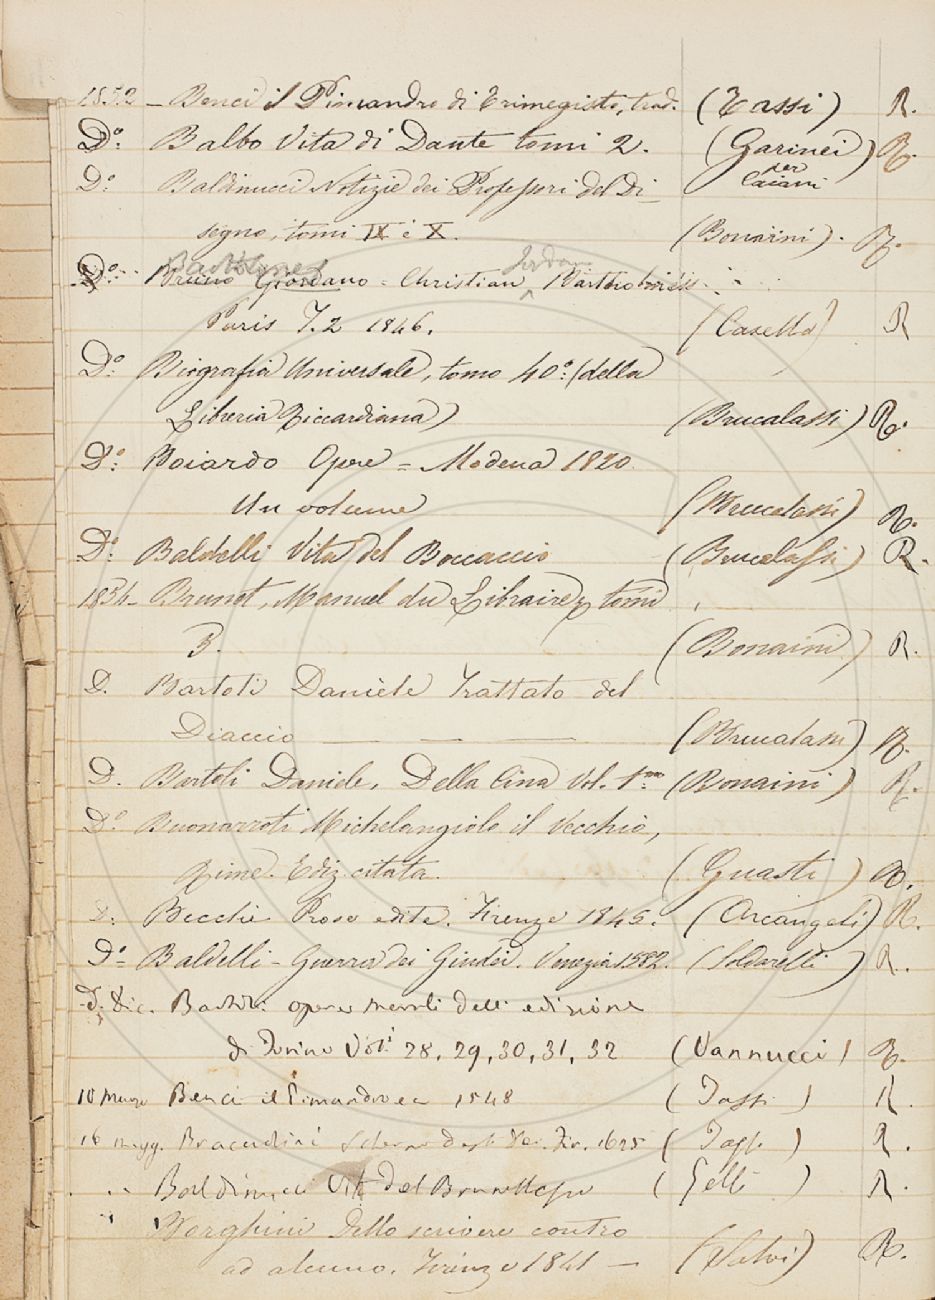 1852 - Benci il Pimandro di Trimegisto, trad. (Tassi) R.
Dº: Balbo Vita di Dante tomi 2. (Garinei R.
per
Caiani)
Dº Baldinucci Notizie dei Professori del Di=
segno, tomi IX e X. (Bonaini). R.
Jordan
Dº: Bruno Giordano = Christian Bartholmèss
Paris T. 2 1846. (Casella) R
Dº: Biografia Universale, tomo 40º: (della
Libreria Riccardiana) (Brucalassi) R.
Dº: Boiardo Opere = Modena 1820.
Un volume (Brucalassi) R.
Dº: Baldelli Vita del Boccaccio (Brucalassi) R.
Brunet, Manuel du Libraire, tomi
3. (Bonaini) R.
D. Bartoli Daniele Trattato del
Diaccio (Brucalassi) R.
D. Bartoli Daniele, Della Cina Vol. 1º (Bonaini) R.
Dº Buonarroti Michelangiolo il Vecchio,
Rime. Ediz. citata. (Guasti) R.
D. Becchi Prose edite. Firenze 1845. (Arcangeli) R.
Dº= Baldelli - Guerra dei Giudei. Venezia 1582. (Soldarelli) R.
D. Dic. Bartoli opere morali dell' edizione
di Torino Vol.i 28, 29, 30, 31, 32 (Vannucci) R.
10 Marzo Benci il Pimandro ec 1548 (Tassi) R.
16 Magg. Bracciolini Scherno degli Dei. Fir. 1625 (Tassi) R.
Baldinucci Vita del Brunellesco (Gelli) R.
Borghini Dello scrivere contro
ad alcuno. Firenze 1841 - (Salvi) R.